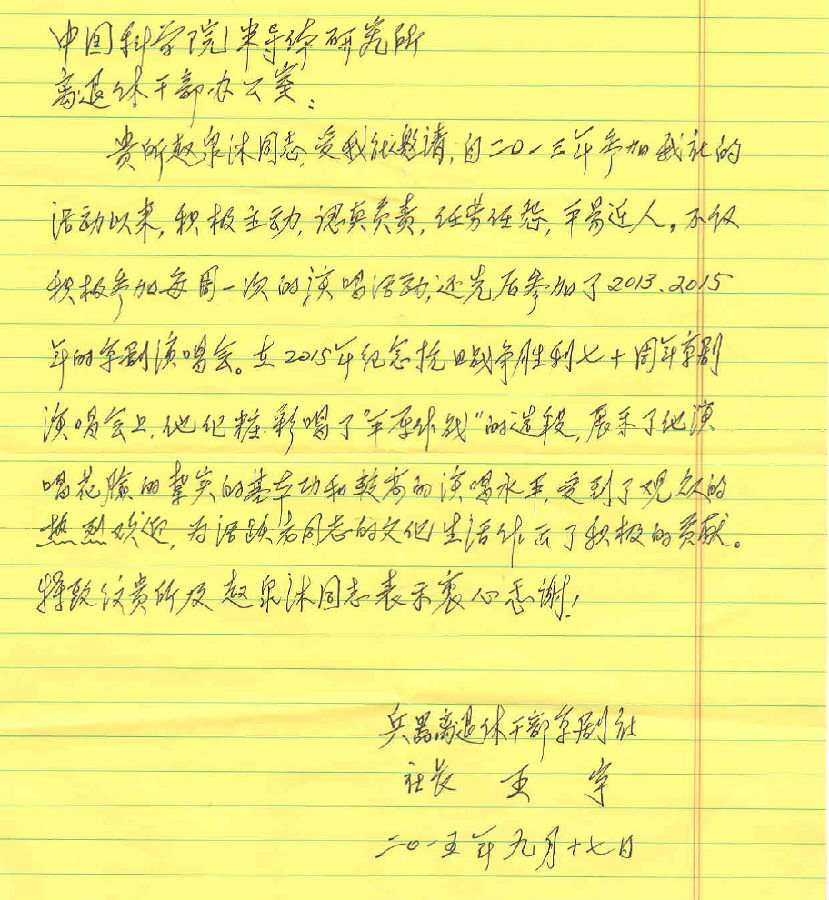 中国科学院半导体研究所
离退休干部办公室：
贵所赵泉沐同志，受我社邀请，自二〇一三年参加我社的
活动以来，积极主动，认真负责，任劳任怨，平易近人。不仅
积极参加每周一次的演唱活动，还先后参加了2013、2015
年的京剧演唱会。在2015年纪念抗日战争胜利七十周年京剧
演唱会上，他化粧彩唱了"平原作战"的选段，展示了他演
唱花臉的扎实的基本功和较高的演唱水平，受到了观众的
热烈欢迎，为活跃老同志的文化生活作出了积极的贡献。
特致 贵所及赵泉沐同志表示衷心感谢！
兵器离退休干部京剧社
社长 王宇
二〇一五年九月十七日